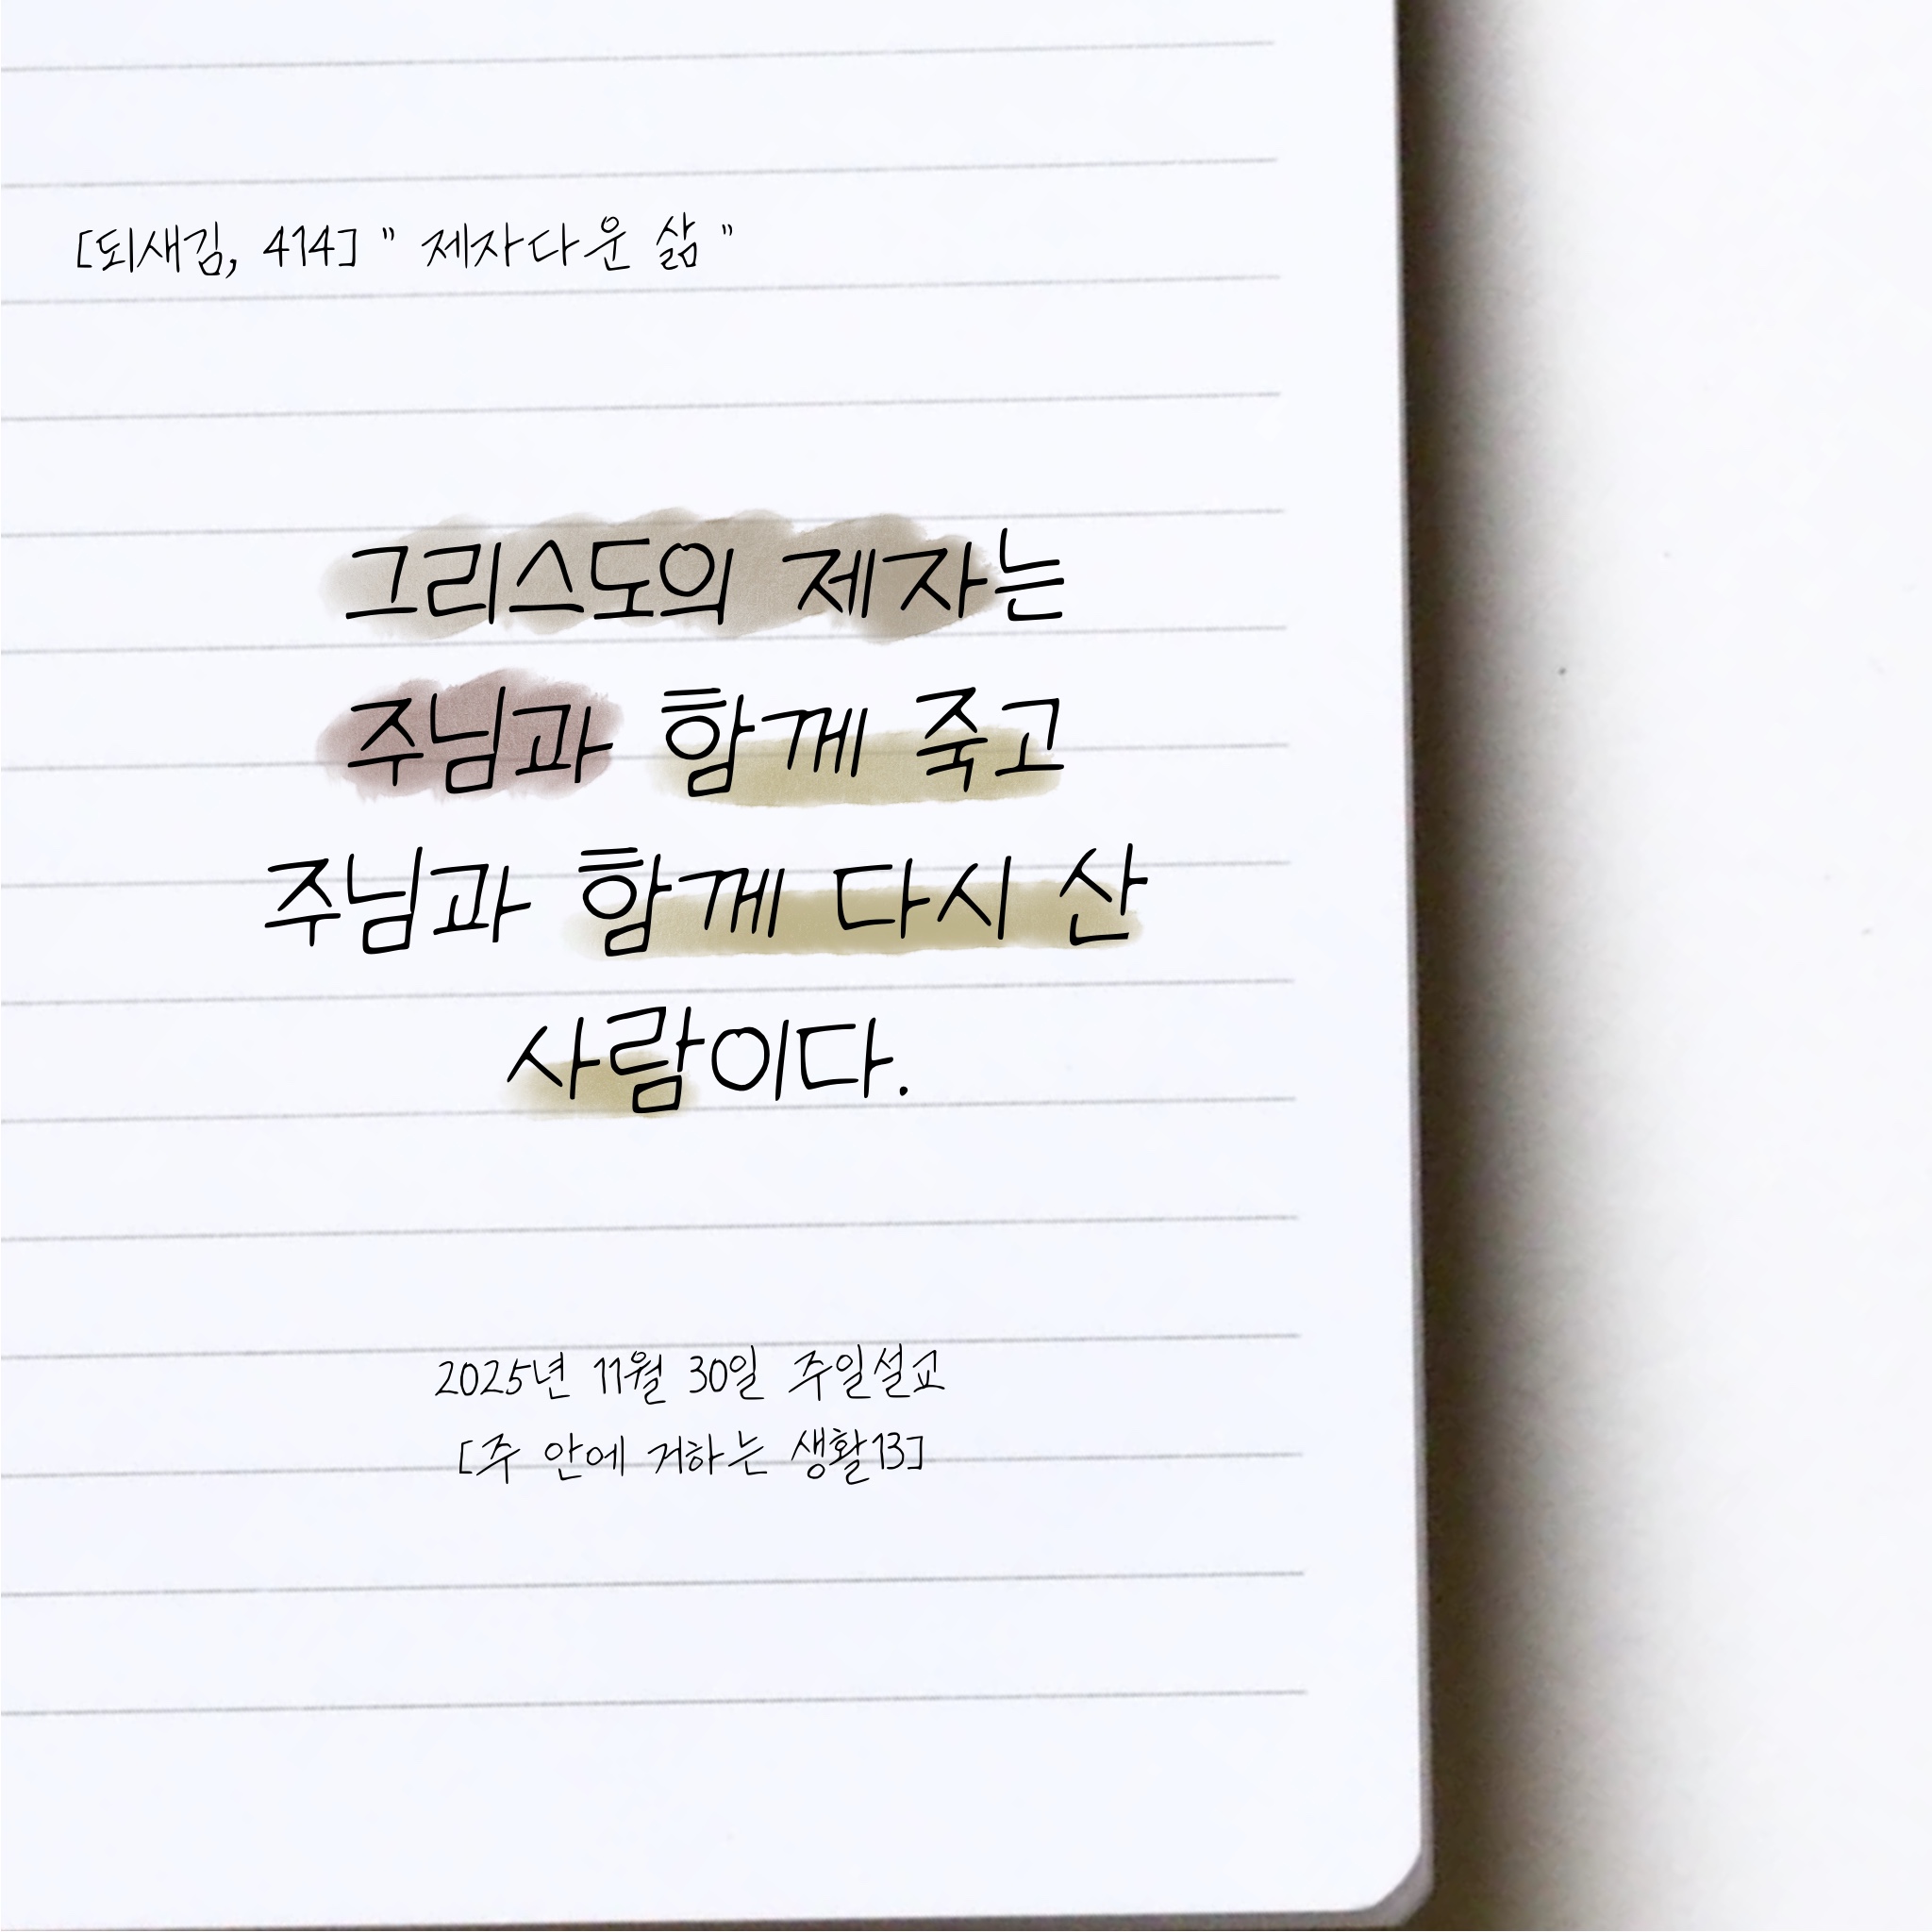 [되새김, 414] " 제자다운 삶 "
그리스도의 제자는
주님과 함께 죽고
주님과 함께 다시 산
사람이다.
2025년 11월 30일 주일설교
[주 안에 거하는 생활13]